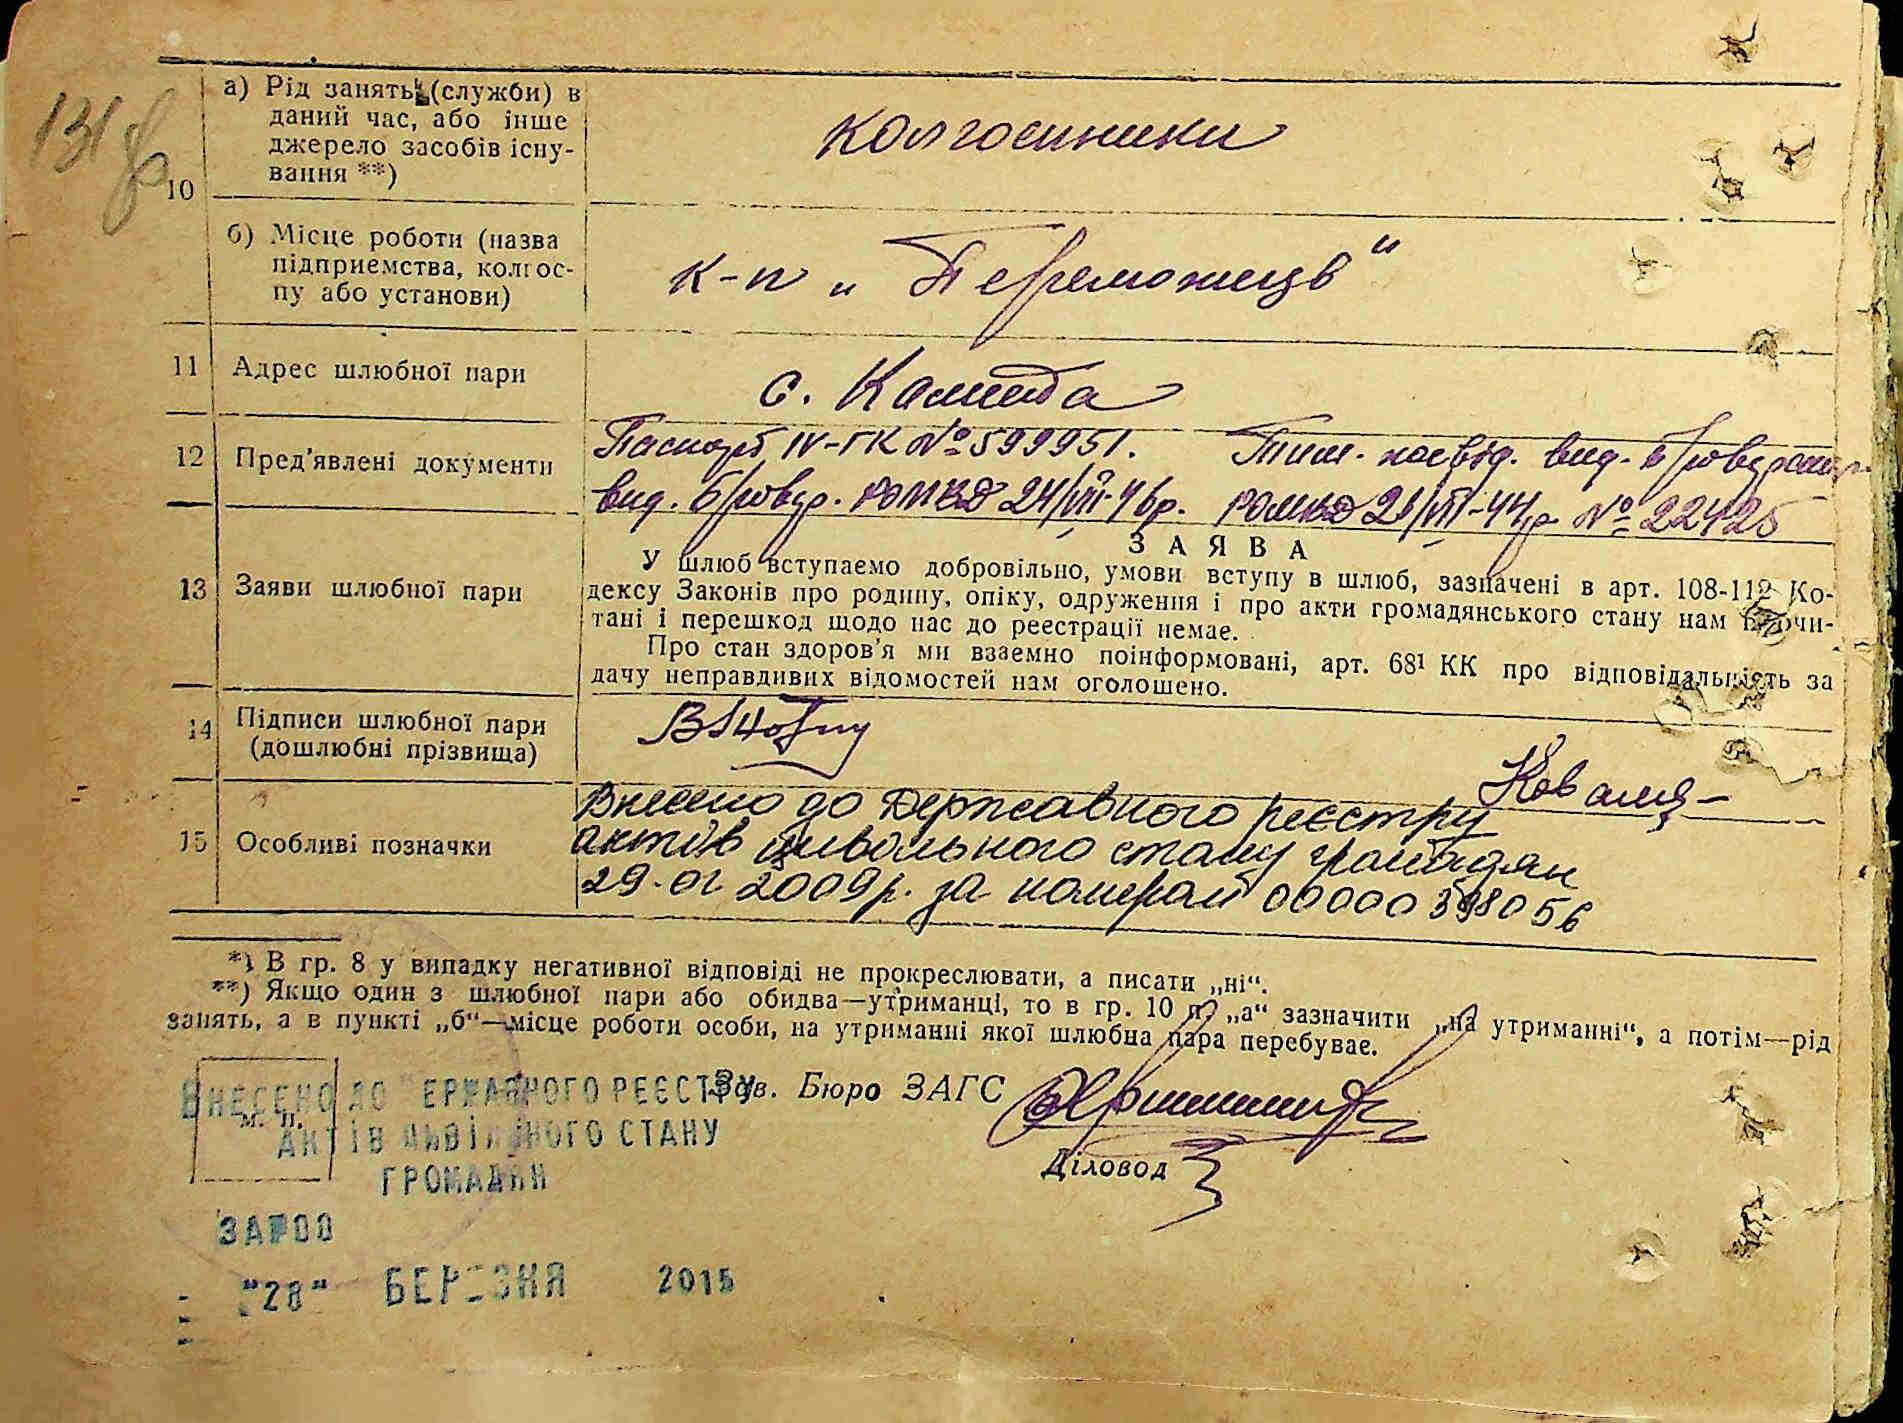 131 зв
10
а) Рід занять (служби) в
даний час, або інше
джерело засобів існу-
вання **)
колгоспники
б) Місце роботи (назва
підприємства, колгос-
пу або установи)
к-п „Переможець"
11 Адрес шлюбної пари
с. Калита
12 Пред'явлені документи
Паспорт IV-ГК № 599951. Тим. посвід. вид. Броварськ.
вид. Бровар. РОМВД 24/VIII-46р. РОМВД 21/VIII-44р № 22425
13 Заяви шлюбної пари
ЗАЯВА
У шлюб вступаємо добровільно, умови вступу в шлюб, зазначені в арт. 108-112 Ко-
дексу Законів про родину, опіку, одруження і про акти громадянського стану нам прочи-
тані і перешкод щодо нас до реєстрації немає.
Про стан здоров'я ми взаємно поінформовані, арт. 68¹ КК про відповідальність за
дачу неправдивих відомостей нам оголошено.
14 Підписи шлюбної пари
(дошлюбні прізвища)
15 Особливі позначки
Внесено до Державного реєстру
актів цивільного стану громадян
29.01 2009р. за номером 00000398056
*) В гр. 8 у випадку негативної відповіді не прокреслювати, а писати „ні“.
**) Якщо один з шлюбної пари або обидва—утриманці, то в гр. 10 п. „а“ зазначити „на утриманні“, а потім—рід
занять, а в пункті „б“—місце роботи особи, на утриманні якої шлюбна пара перебуває.
Зав. Бюро ЗАГС
Діловод
М. П.
ВНЕСЕНО ДО ДЕРЖАВНОГО РЕЄСТРУ
АКТІВ ЦИВІЛЬНОГО СТАНУ
ГРОМАДЯН
"28" БЕРЕЗНЯ 2015